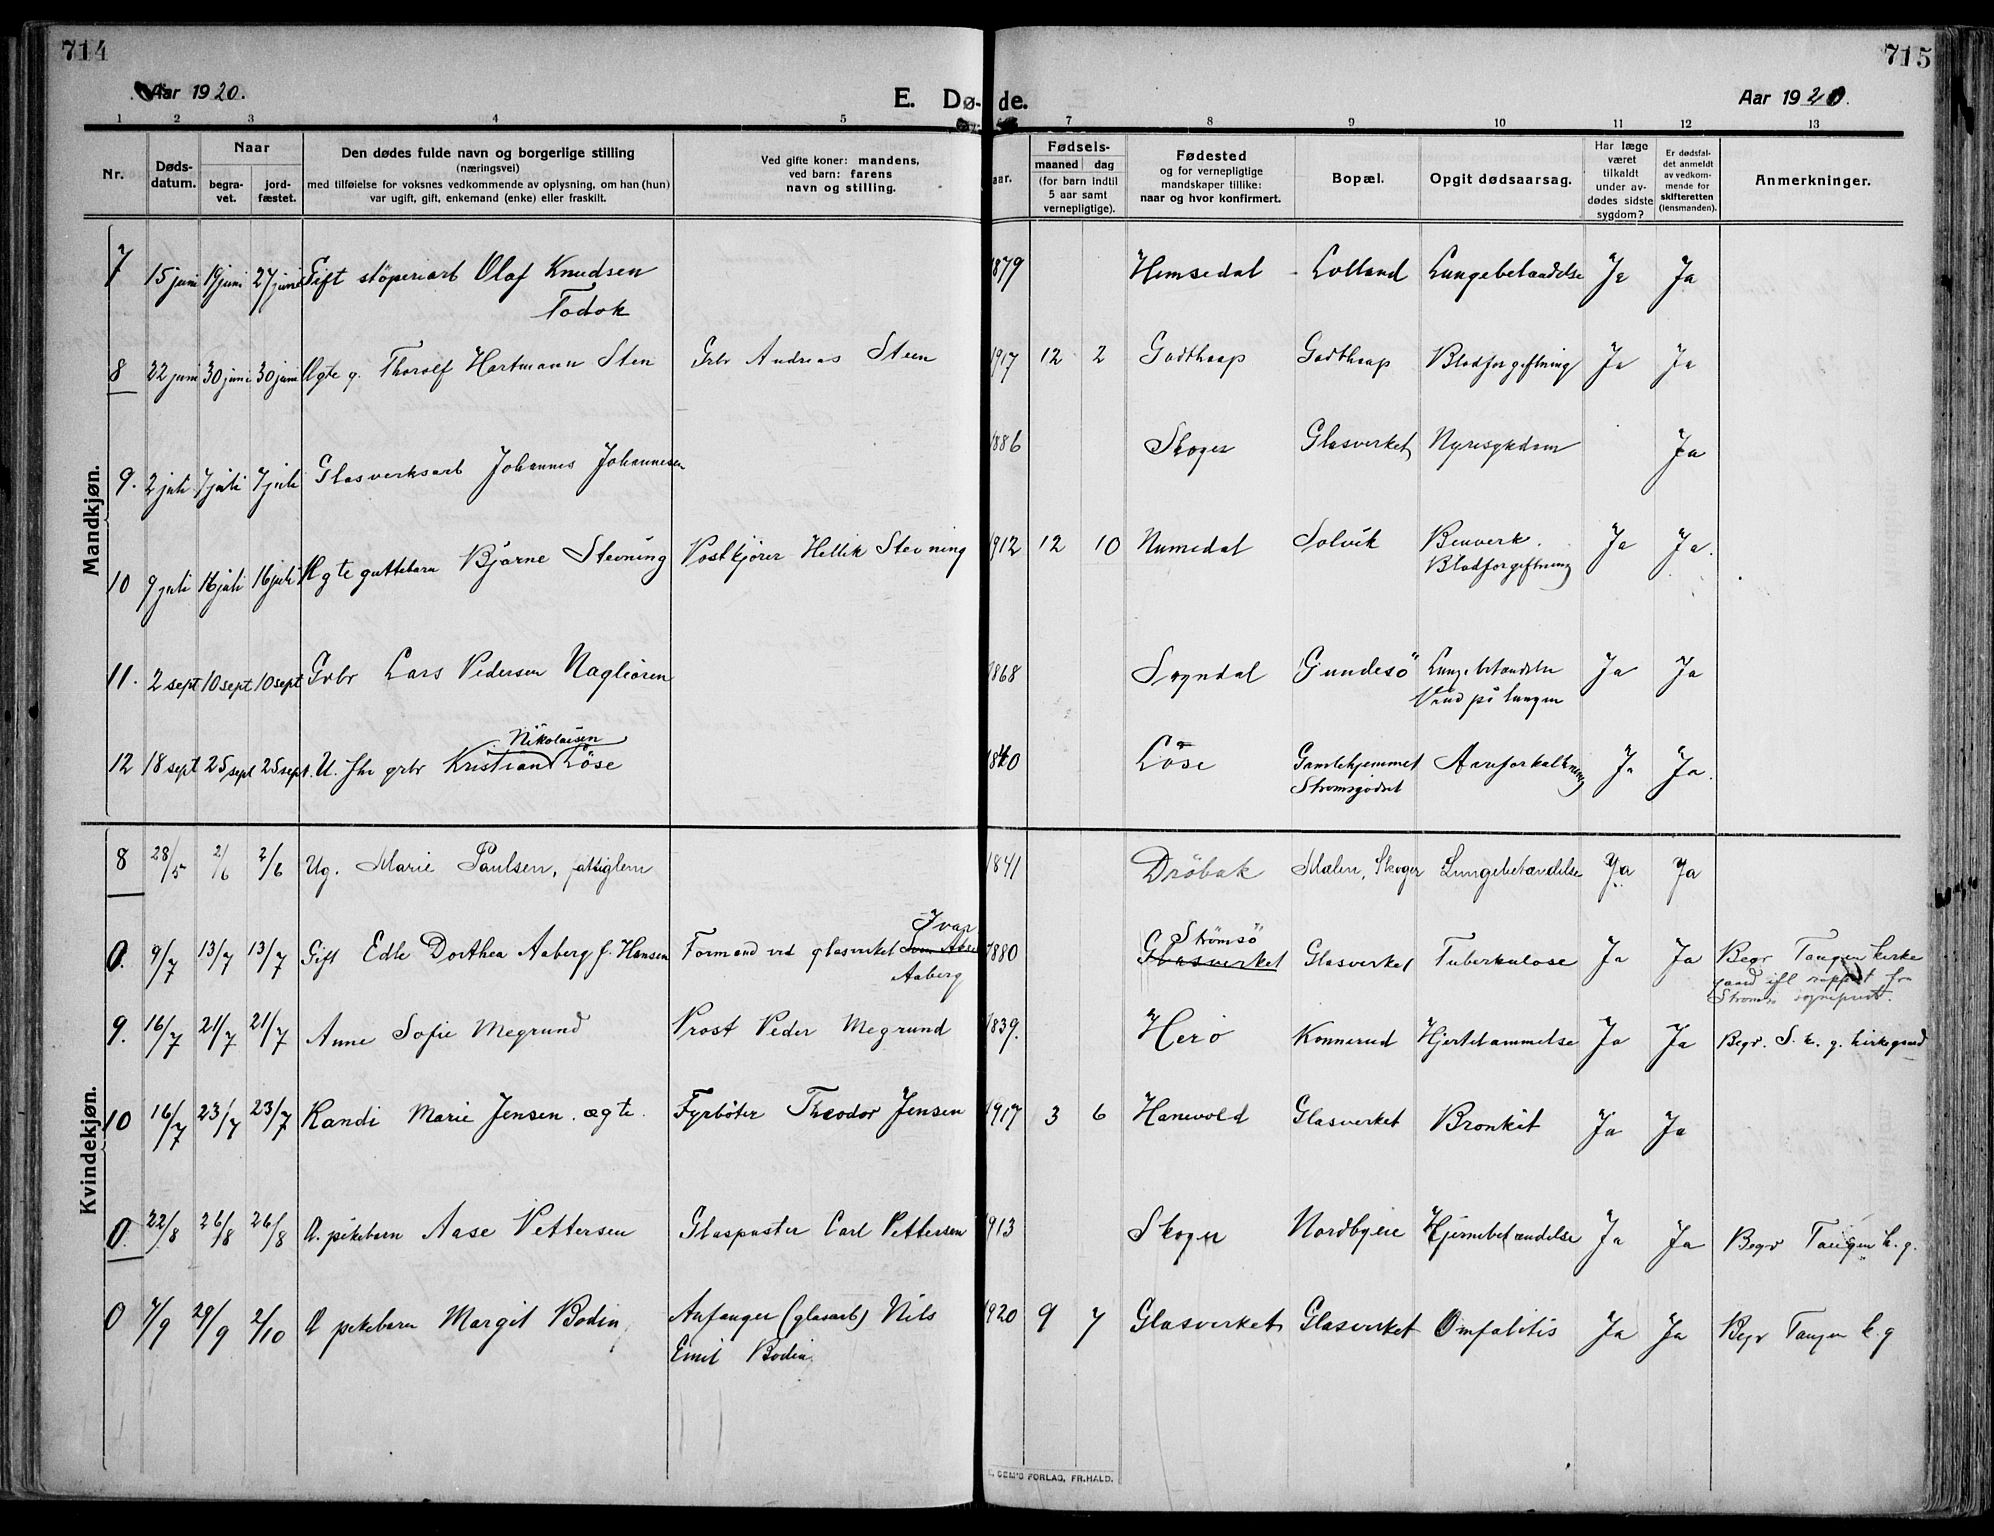 714
715
Aar 1920.
E. Dø-
de.
Aar 1920.
1 2 3 4 5 7 8 9 10 11 12 13
Nr.
Døds-
datum.
Naar
begra-
vet.
jord-
fæstet.
Den dødes fulde navn og borgerlige stilling
(næringsvei)
med tilføielse for voksnes vedkommende av oplysning, om han (hun)
var ugift, gift, enkemand (enke) eller fraskilt.
Ved gifte koner: mandens,
ved barn: farens
navn og stilling.
aar.
Fødsels-
maaned dag
(for barn indtil
5 aar samt
vernepligtige).
Fødested
og for vernepligtige
mandskaper tillike:
naar og hvor konfirmert.
Bopæl.
Opgit dødsaarsag.
Har læge
været
tilkaldt
under av-
dødes sidste
sygdom?
Er dødsfal-
det anmeldt
av vedkom-
mende for
skifteretten
(lensmanden).
Anmerkninger.
Mandkjøn.
7 15 juni 19 juni 27 juni Gift støperiarb Olaf Knudsen 1879 Hemsedal Lolland Lungebetændelse Ja Ja
Todok
8 22 juni 30 juni 30 juni Ægte g. Thorolf Hartmann Sten Grbr Andreas Steen 1917 12 2 Godthaap Godthaap Blodforgiftning Ja Ja
9. 2 juli 7 juli 7 juli Glasverksarb Johannes Johannesen 1886 Skoger Glasverket Nyresykdom Ja
10 9 juli 16 juli 16 juli Ægte guttebarn Bjarne Stevning Postkjører Hellik Stevning 1912 12 10 Numedal Solvik Benverk. Ja Ja.
Blodforgiftning
11. 2 sept 10 sept 10 sept Grbr Lars Pedersen Nagløren 1868 Sogndal Gundesö Lungebetændelse Ja Ja
Vand på lungen
Nikolaisen
12 18 sept 25 sept 25 sept. U. fhv grbr Kristian Löse 1840 Löse Gamlehjemmet Aareforkalkning Ja Ja.
Strømsgodset
Kvindekjøn.
8 28/5 2/6 2/6 Ug. Marie Paulsen, fattiglem 1841 Dröbak Mælen, Skoger Lungebetændelse Ja Ja
Ivar
Strömsö
0. 9/7 13/7 13/7 Gift Edle Dorthea Aaberg f. Hansen Formand ved glasverket 1880 Glasverket Glasverket Tuberkulose Ja Ja Begr Tangen kirke
Aaberg
gaard ifl rapport fra
Strømsø sogneprest.
9. 16/7 21/7 21/7 Anne Sofie Megrund Prost Peder Megrund 1839. Herö Konnerud Hjertelammelse Ja Ja Begr. S. k. g. kirkegaard
10 16/7 23/7 23/7 Randi Marie Jensen. ægte. Fyrböter Theodor Jensen 1917 3 6 Hanevold Glasverket Bronkit Ja Ja
0. 22/8 26/8 26/8 Æ. pikebarn Aase Pettersen Glaspuster Carl Pettersen 1913 Skoger Nordbyeie Hjernebetændelse Ja Ja Begr Tangen k. g.
0 7/9 29/9 2/10 Æ pikebarn Margit Bodin Anfanger (glasarb) Nils 1920 9 7 Glasverket Glasverket Omfalitis Ja Ja Begr Tangen k. g
Emil Bodin.
SEM'S FORLAG, FR.HALD.